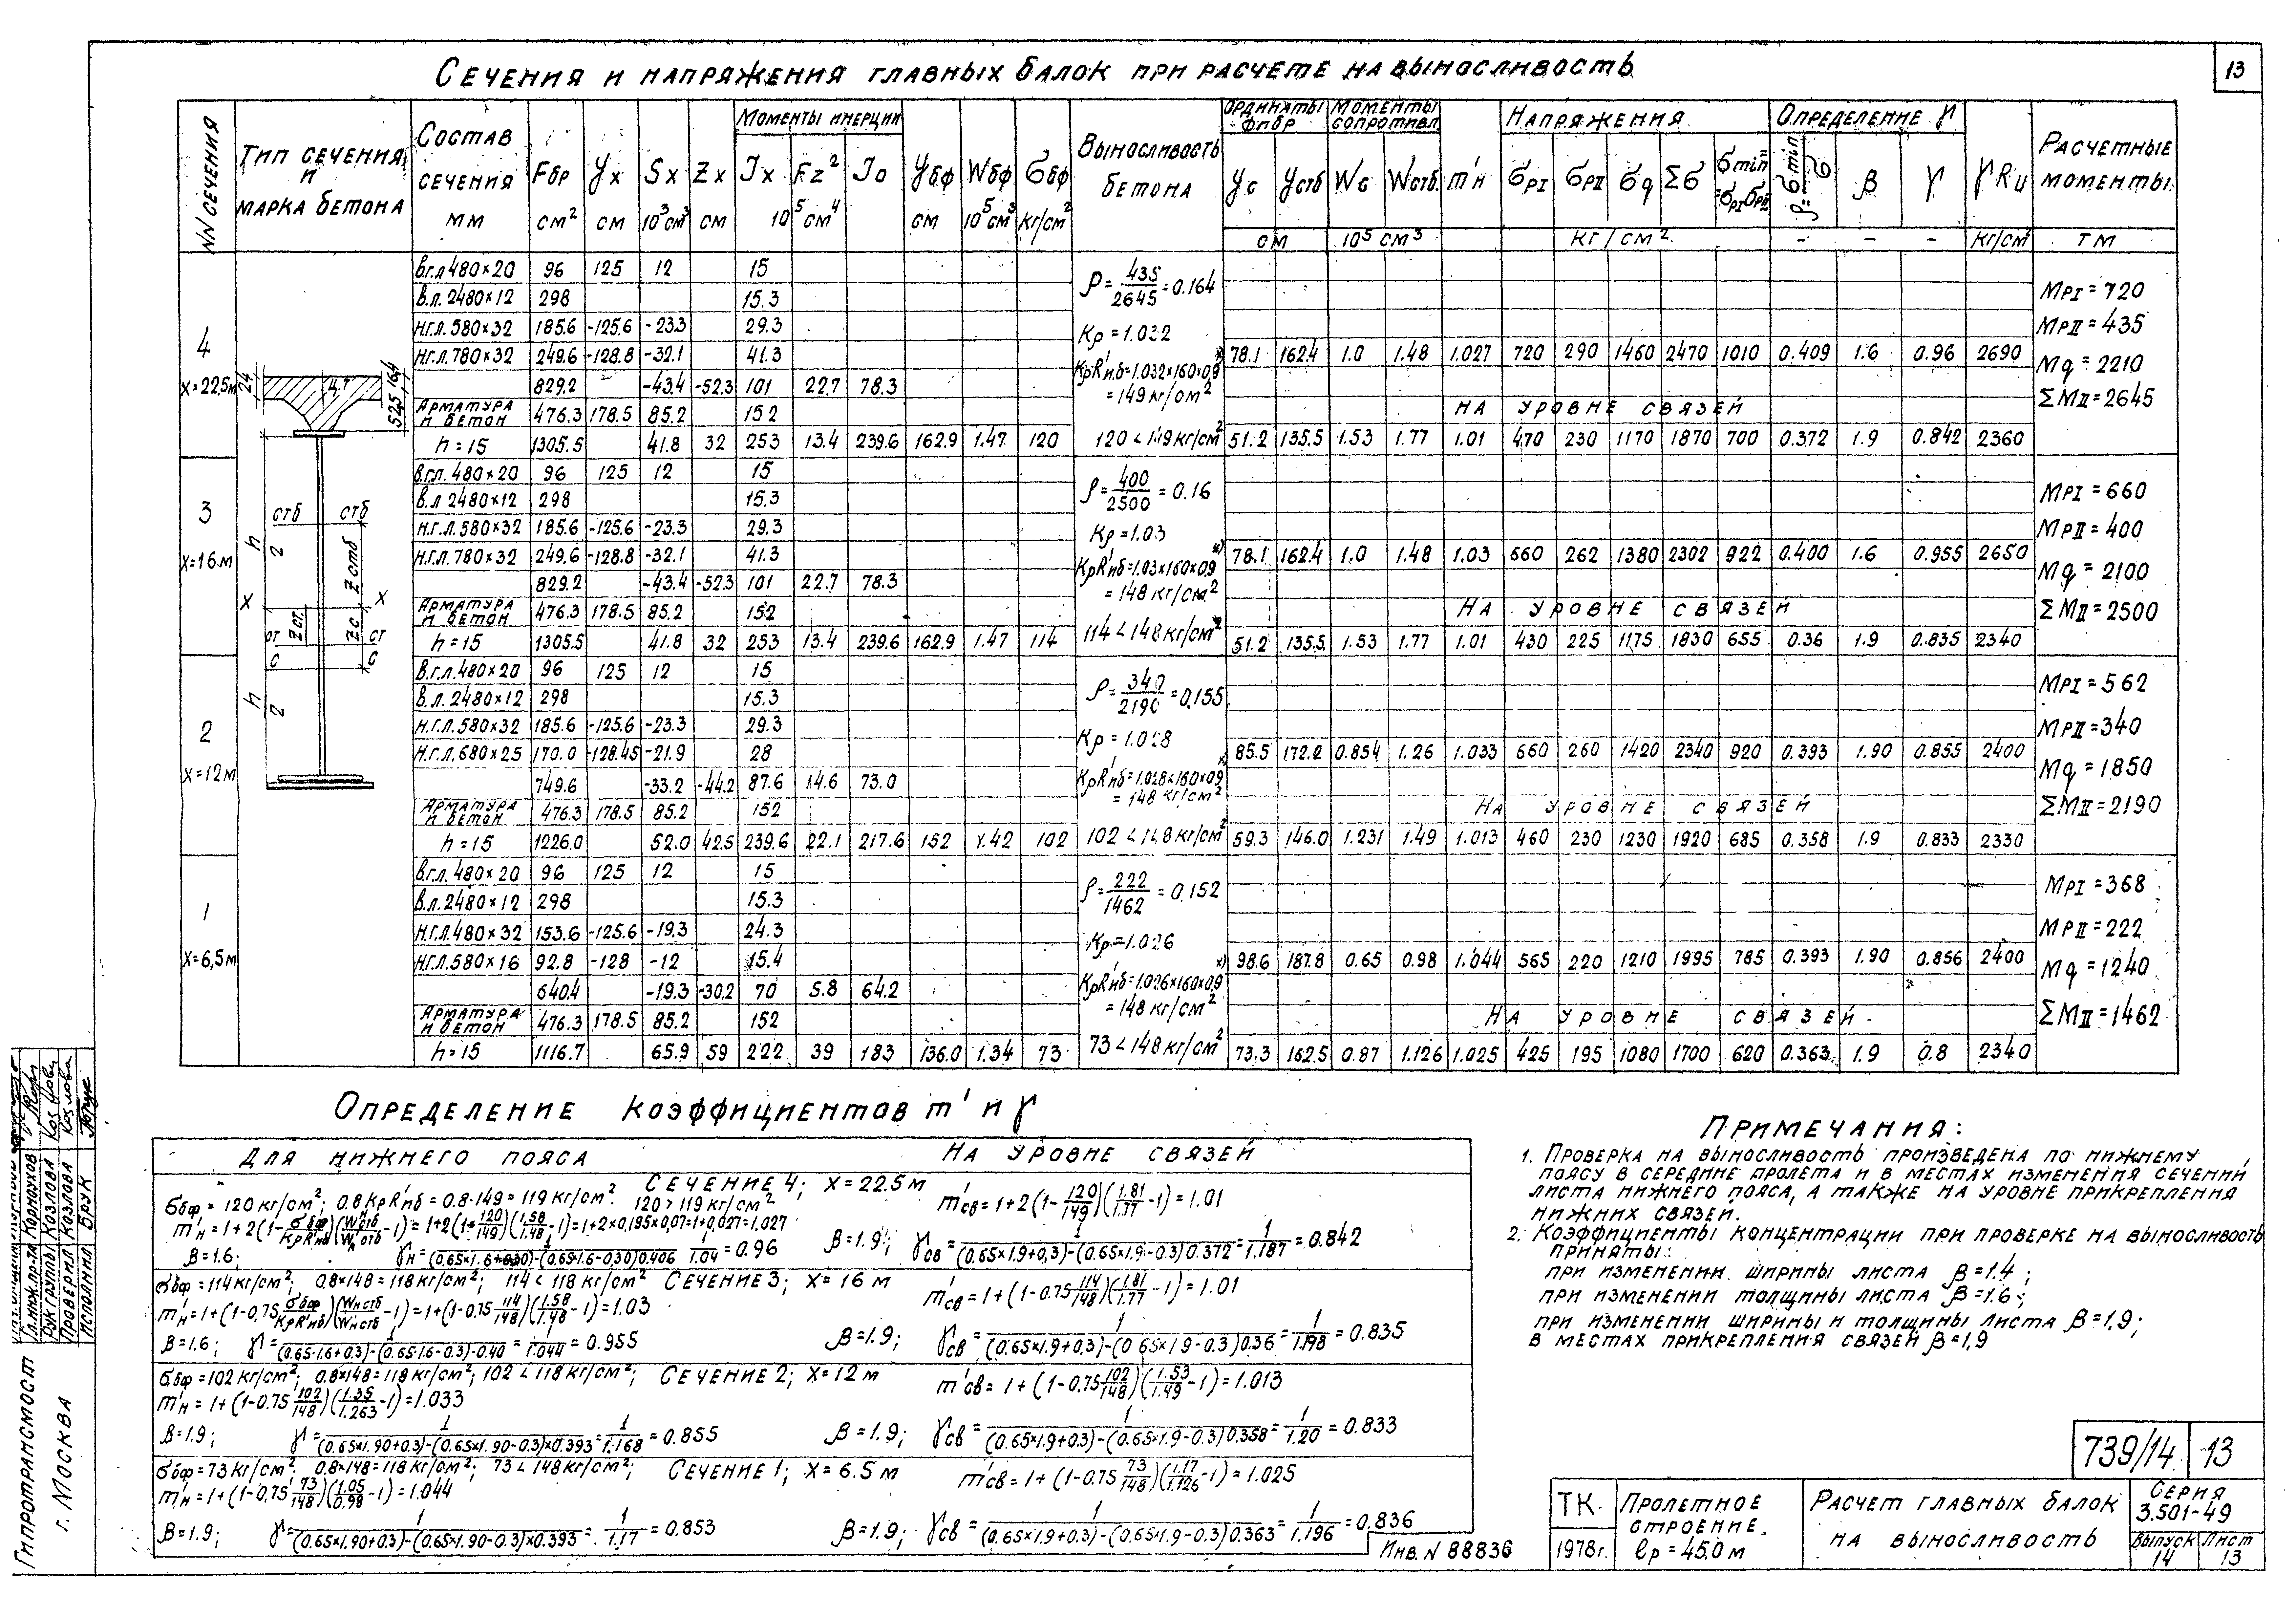 13
Сечения и напряжения главных балок при расчете на выносливость
NN сечения
Тип сечения и марка бетона
Состав сечения мм
Fбр см²
Yx см
Sx 10³см³
Zx см
Моменты инерции
Jx Fz² Jo
10⁵ см⁴
Yбф см
Wбф 10⁵см³
σбф кг/см²
Выносливость бетона
Ординаты фибр
Yс Yстб
см
Моменты сопротивл.
Wс Wстб
10⁵ см³
m'н
Напряжения
σрI σрII σq Σσ σmin = σрI σрII
кг/см²
Определение γ
ρ = σmin/σ β γ
– – –
γRu
кг/см²
Расчетные моменты
тм
4
x=22.5м
в.г.л 480×20 96 125 12 15
в.л. 2480×12 298 15.3
н.г.л. 580×32 185.6 -125.6 -23.3 29.3
н.г.л. 780×32 249.6 -128.8 -32.1 41.3
829.2 -43.4 -52.3 101 22.7 78.3
Арматура и бетон 476.3 178.5 85.2 152
n=15 1305.5 41.8 32 253 13.4 239.6 162.9 1.47 120
ρ = 435/2645 = 0.164
Kρ = 1.032
KρR'и.б = 1.032×160×0.9 *)
= 149 кг/см²
120 < 149 кг/см²
78.1 162.4 1.0 1.48 1.027 720 290 1460 2470 1010 0.409 1.6 0.96 2690
На уровне связей
51.2 135.5 1.53 1.77 1.01 470 230 1170 1870 700 0.372 1.9 0.842 2360
MрI = 720
MрII = 435
Mq = 2210
ΣMII = 2645
3
x=16м
в.г.л. 480×20 96 125 12 15
в.л 2480×12 298 15.3
н.г.л. 580×32 185.6 -125.6 -23.3 29.3
н.г.л. 780×32 249.6 -128.8 -32.1 41.3
829.2 -43.4 -52.3 101 22.7 78.3
Арматура и бетон 476.3 178.5 85.2 152
n=15 1305.5 41.8 32 253 13.4 239.6 162.9 1.47 114
ρ = 400/2500 = 0.16
Kρ = 1.03
KρR'иб = 1.03×160×0,9 *)
= 148 кг/см²
114 < 148 кг/см²
78.1 162.4 1.0 1.48 1.03 660 262 1380 2302 922 0.400 1.6 0.955 2650
На уровне связей
51.2 135.5 1.53 1.77 1.01 430 225 1175 1830 655 0.36 1.9 0.835 2340
MрI = 660
MрII = 400
Mq = 2100
ΣMII = 2500
2
x=12м
в.г.л. 480×20 96 125 12 15
в.л. 2480×12 298 15.3
н.г.л. 580×32 185.6 -125.6 -23.3 29.3
н.г.л. 680×25 170.0 -128.45 -21.9 28
749.6 -33.2 -44.2 87.6 14.6 73.0
Арматура и бетон 476.3 178.5 85.2 152
n=15 1226.0 52.0 42.5 239.6 22.1 217.6 152 1.42 102
ρ = 340/2190 = 0.155
Kρ = 1.028
KρR'иб = 1.028×160×0,9 *)
= 148 кг/см²
102 < 148 кг/см²
85.5 172.2 0.854 1.26 1.033 660 260 1420 2340 920 0.393 1.90 0.855 2400
На уровне связей
59.3 146.0 1.231 1.49 1.013 460 230 1230 1920 685 0.358 1.9 0.833 2330
MрI = 562
MрII = 340
Mq = 1850
ΣMII = 2190
1
x=6,5м
в.г.л. 480×20 96 125 12 15
в.л. 2480×12 298 15.3
н.г.л. 480×32 153.6 -125.6 -19.3 24.3
н.г.л. 580×16 92.8 -128 -12 15.4
640.4 -19.3 -30.2 70 5.8 64.2
Арматура и бетон 476.3 178.5 85.2 152
n=15 1116.7 65.9 59 222 39 183 136.0 1.34 73
ρ = 222/1462 = 0.152
Kρ = 1.026
KρR'иб = 1.026×160×0,9 *)
= 148 кг/см²
73 < 148 кг/см²
98.6 187.8 0.65 0.98 1.044 565 220 1210 1995 785 0.393 1.90 0.856 2400
На уровне связей
73.3 162.5 0.87 1.126 1.025 425 195 1080 1700 620 0.363 1.9 0.8 2340
MрI = 368
MрII = 222
Mq = 1240
ΣMII = 1462
24 4.7 16.4 52.5
стб стб
h/2
Z стб
x x
ст Zст. Zс ст
с с
h/2
Определение коэффициентов m' и γ
Для нижнего пояса На уровне связей
Сечение 4; x=22.5 м
σбф = 120 кг/см²; 0.8KρR'иб = 0.8·149 = 119 кг/см². 120 > 119 кг/см²
m'н = 1+2(1-σбф/KρR'иб)(Wнстб/Wнстб -1) = 1+2(1-120/149)(1.58/1.48 -1) = 1+2×0,195×0,07 = 1+0,027 = 1.027
m'св = 1+2(1-120/149)(1.81/1.77 -1) = 1.01
β=1.6; γн = 1/((0.65×1.6+0.30)-(0.65·1.6-0,30)0.406) = 1/1.04 = 0.96
β=1.9; γсв = 1/((0.65×1.9+0,3)-(0.65×1.9-0.3)0.372) = 1/1.187 = 0.842
σбф = 114 кг/см²; 0.8×148 = 118 кг/см²; 114 < 118 кг/см² Сечение 3; x=16 м
m'н = 1+(1-0,75 σбф/KρR'иб)(Wнстб/Wнстб -1) = 1+(1-0.75 114/148)(1.58/1.48 -1) = 1.03
m'св = 1+(1-0.75 114/148)(1.81/1.77 -1) = 1.01
β=1.6; γ = 1/((0.65·1.6+0.3)-(0.65·1.6-0.3)·0.40) = 1/1.044 = 0.955
β=1.9; γсв = 1/((0.65×1.9+0,3)-(0.65×1.9-0.3)0.36) = 1/1.198 = 0.835
σбф = 102 кг/см²; 0.8×148 = 118 кг/см²; 102 < 118 кг/см²; Сечение 2; x=12 м
m'н = 1+(1-0.75 102/148)(1.35/1.263 -1) = 1.033
m'св = 1+(1-0,75 102/148)(1.53/1.49 -1) = 1.013
β=1.9; γ = 1/((0.65×1.90+0.3)-(0.65×1.90-0.3)×0.393) = 1/1.168 = 0.855
β=1.9; γсв = 1/((0.65×1.9+0.3)-(0.65×1.9-0.3)0.358) = 1/1.20 = 0.833
σбф = 73 кг/см²; 0.8×148 = 118 кг/см²; 73 < 148 кг/см²; Сечение 1; x=6.5 м
m'н = 1+(1-0,75 73/148)(1.05/0.98 -1) = 1.044
m'св = 1+(1-0.75 73/148)(1.17/1.126 -1) = 1.025
β=1.9; γ = 1/((0.65×1.90+0.3)-(0.65×1.90-0.3)×0.393) = 1/1.17 = 0.853
β=1.9; γсв = 1/((0.65×1.9+0.3)-(0.65×1.9-0.3)0.363) = 1/1.196 = 0.836
Инв. N 88836
Примечания:
1. Проверка на выносливость произведена по нижнему
поясу в середине пролета и в местах изменения сечений
листа нижнего пояса, а также на уровне прикрепления
нижних связей.
2. Коэффициенты концентрации при проверке на выносливость
приняты:
при изменении ширины листа β=1.4;
при изменении толщины листа β=1.6;
при изменении ширины и толщины листа β=1,9;
в местах прикрепления связей β=1,9
739/14 13
ТК
1978г.
Пролетное строение.
lр = 45.0 м
Расчет главных балок
на выносливость
Серия
3.501-49
Выпуск 14
Лист 13
Гипротрансмост
г. Москва
Гл.инж.пр-та Корноухов
Рук.группы Козлова
Проверил Козлова
Исполнил Брук